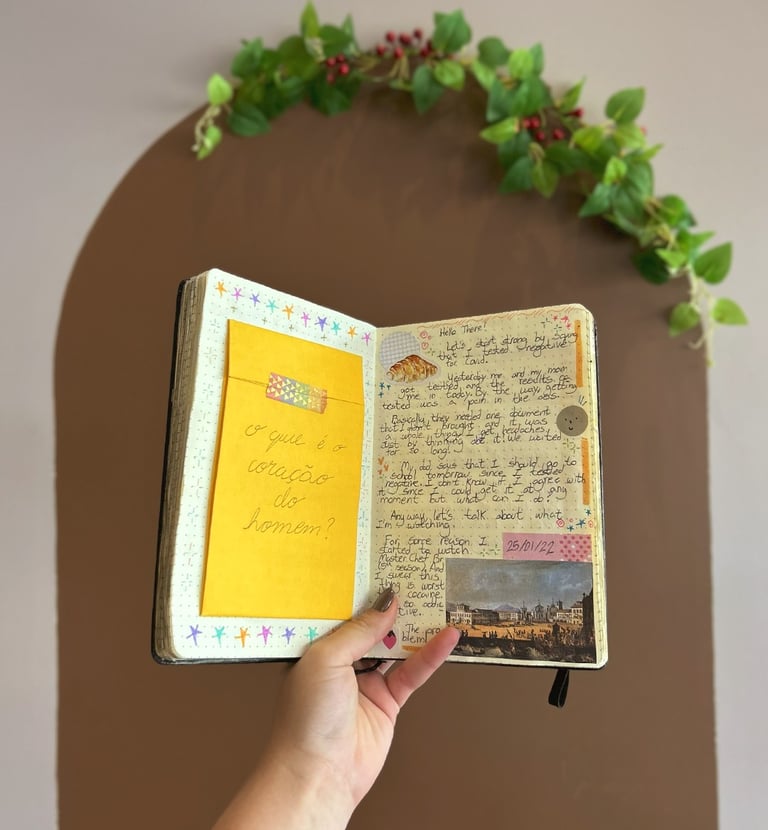 o que é o
coração
do
homem?
Hello There!
Let's start strong by saying
that I tested negative
for Covid.
Yesterday me and my mom
got tested and the results
came in today. By the way, getting
tested was a pain in the ass.
Basically they needed one document
that I didn't brought and it was
a whole thing. I get headaches
just by thinking it. We waited
for so long!
My dad says that I should go to
school tomorrow since I tested
negative. I don't know if I agree with
it since I could get it at any
moment but what can I do?
Anyway, let's talk about what
I'm watching.
For some reason I
started to watch
Master Chef Br
season). And
I swear this
thing is worst
cocaine.
so addic
tive.
The pro
blem
25/01/22